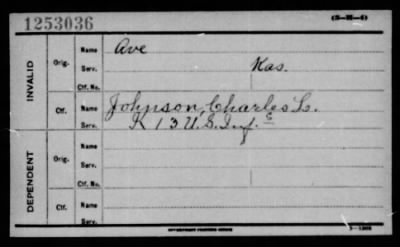 1253036
(3-M-4)
INVALID
Orig.
Name
Ave
Serv.
Kas.
Ctf. No.
Ctf.
Name
Johnson, Charles L.
Serv.
K 13 U.S. Inf.
DEPENDENT
Orig.
Name
Serv.
Ctf. No.
Ctf.
Name
Serv.
GOVERNMENT PRINTING OFFICE